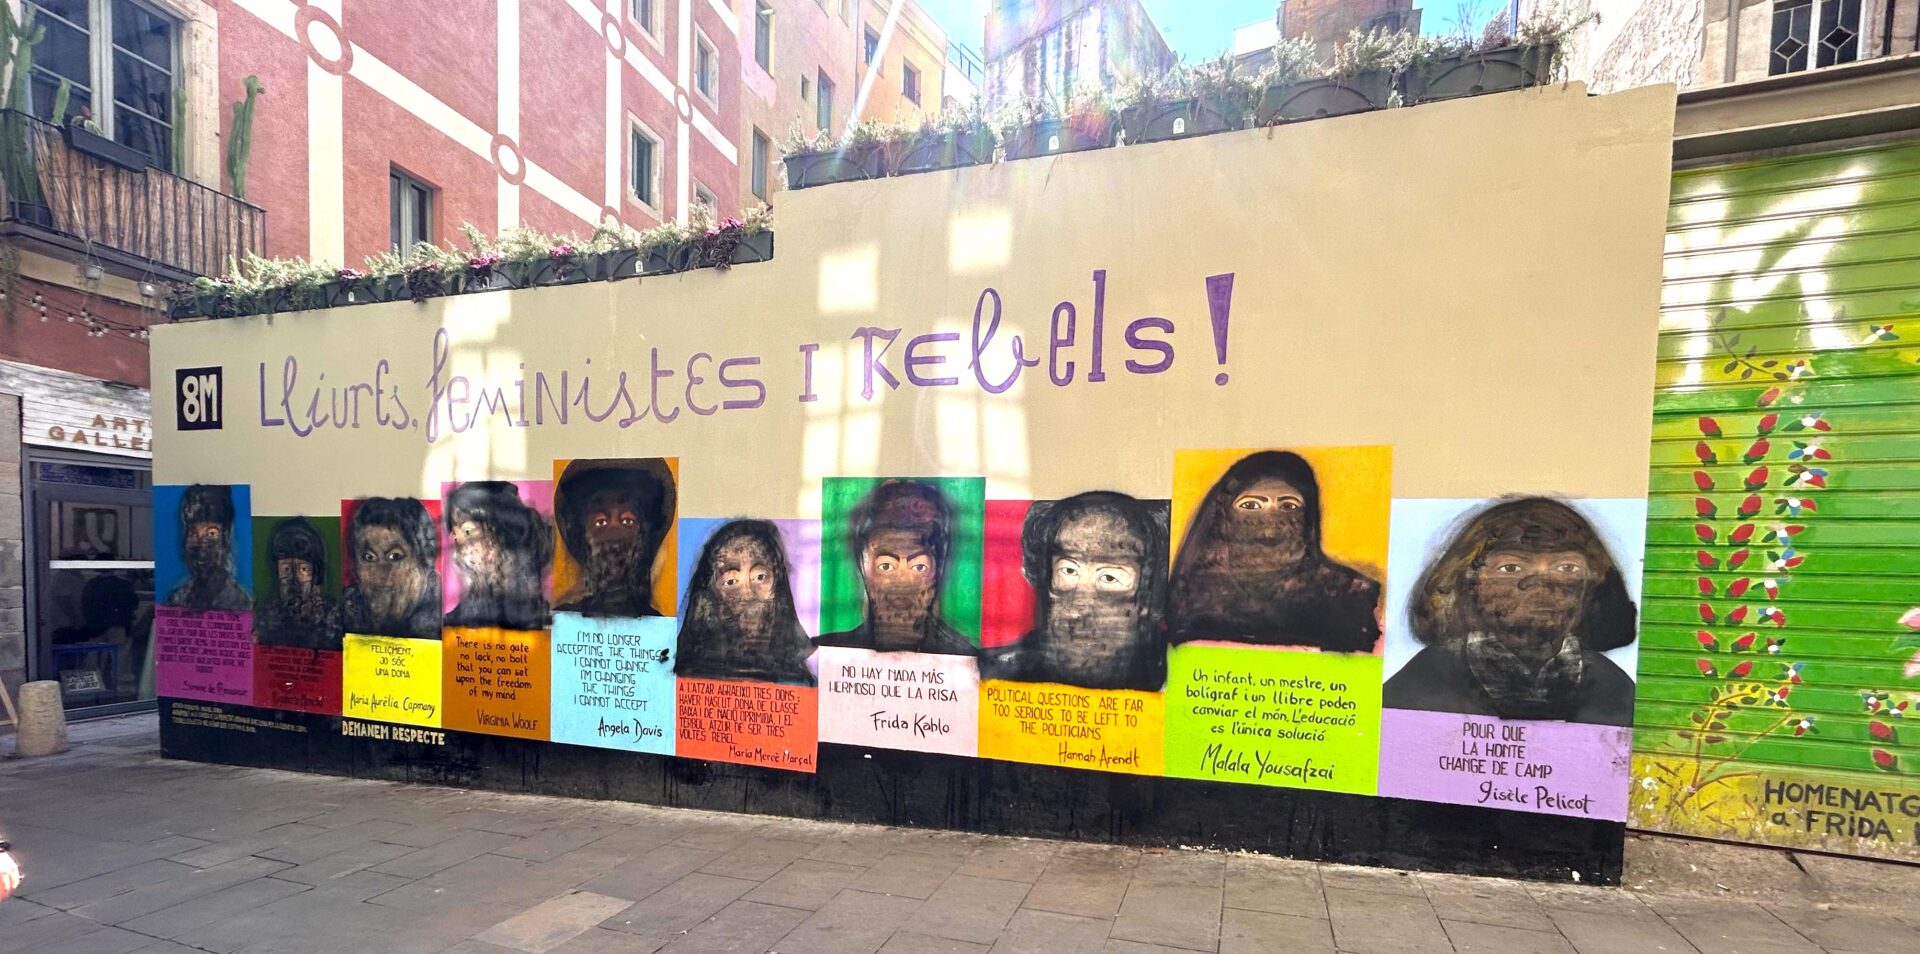 8M
Lliures, feministes i Rebels!
ART
GALLE
Simone de Beauvoir
FELIÇMENT,
JO SÓC
UNA DONA
Maria Aurèlia Capmany
DEMANEM RESPECTE
There is no gate
no lock, no bolt
that you can set
upon the freedom
of my mind
VIRGINIA WOOLF
I'M NO LONGER
ACCEPTING THE THINGS
I CANNOT CHANGE
I'M CHANGING
THE THINGS
I CANNOT ACCEPT
Angela Davis
A L'ATZAR AGRAEIXO TRES DONS:
HAVER NASCUT DONA, DE CLASSE
BAIXA I DE NACIÓ OPRIMIDA, I EL
TÈRBOL ATZUR DE SER TRES
VOLTES REBEL.
Maria Mercè Marçal
NO HAY NADA MÁS
HERMOSO QUE LA RISA
Frida Kahlo
POLITICAL QUESTIONS ARE FAR
TOO SERIOUS TO BE LEFT TO
THE POLITICIANS
Hannah Arendt
Un infant, un mestre, un
bolígraf i un llibre poden
canviar el món. L'educació
es l'única solució
Malala Yousafzai
POUR QUE
LA HONTE
CHANGE DE CAMP
Gisèle Pelicot
HOMENATG
a FRIDA